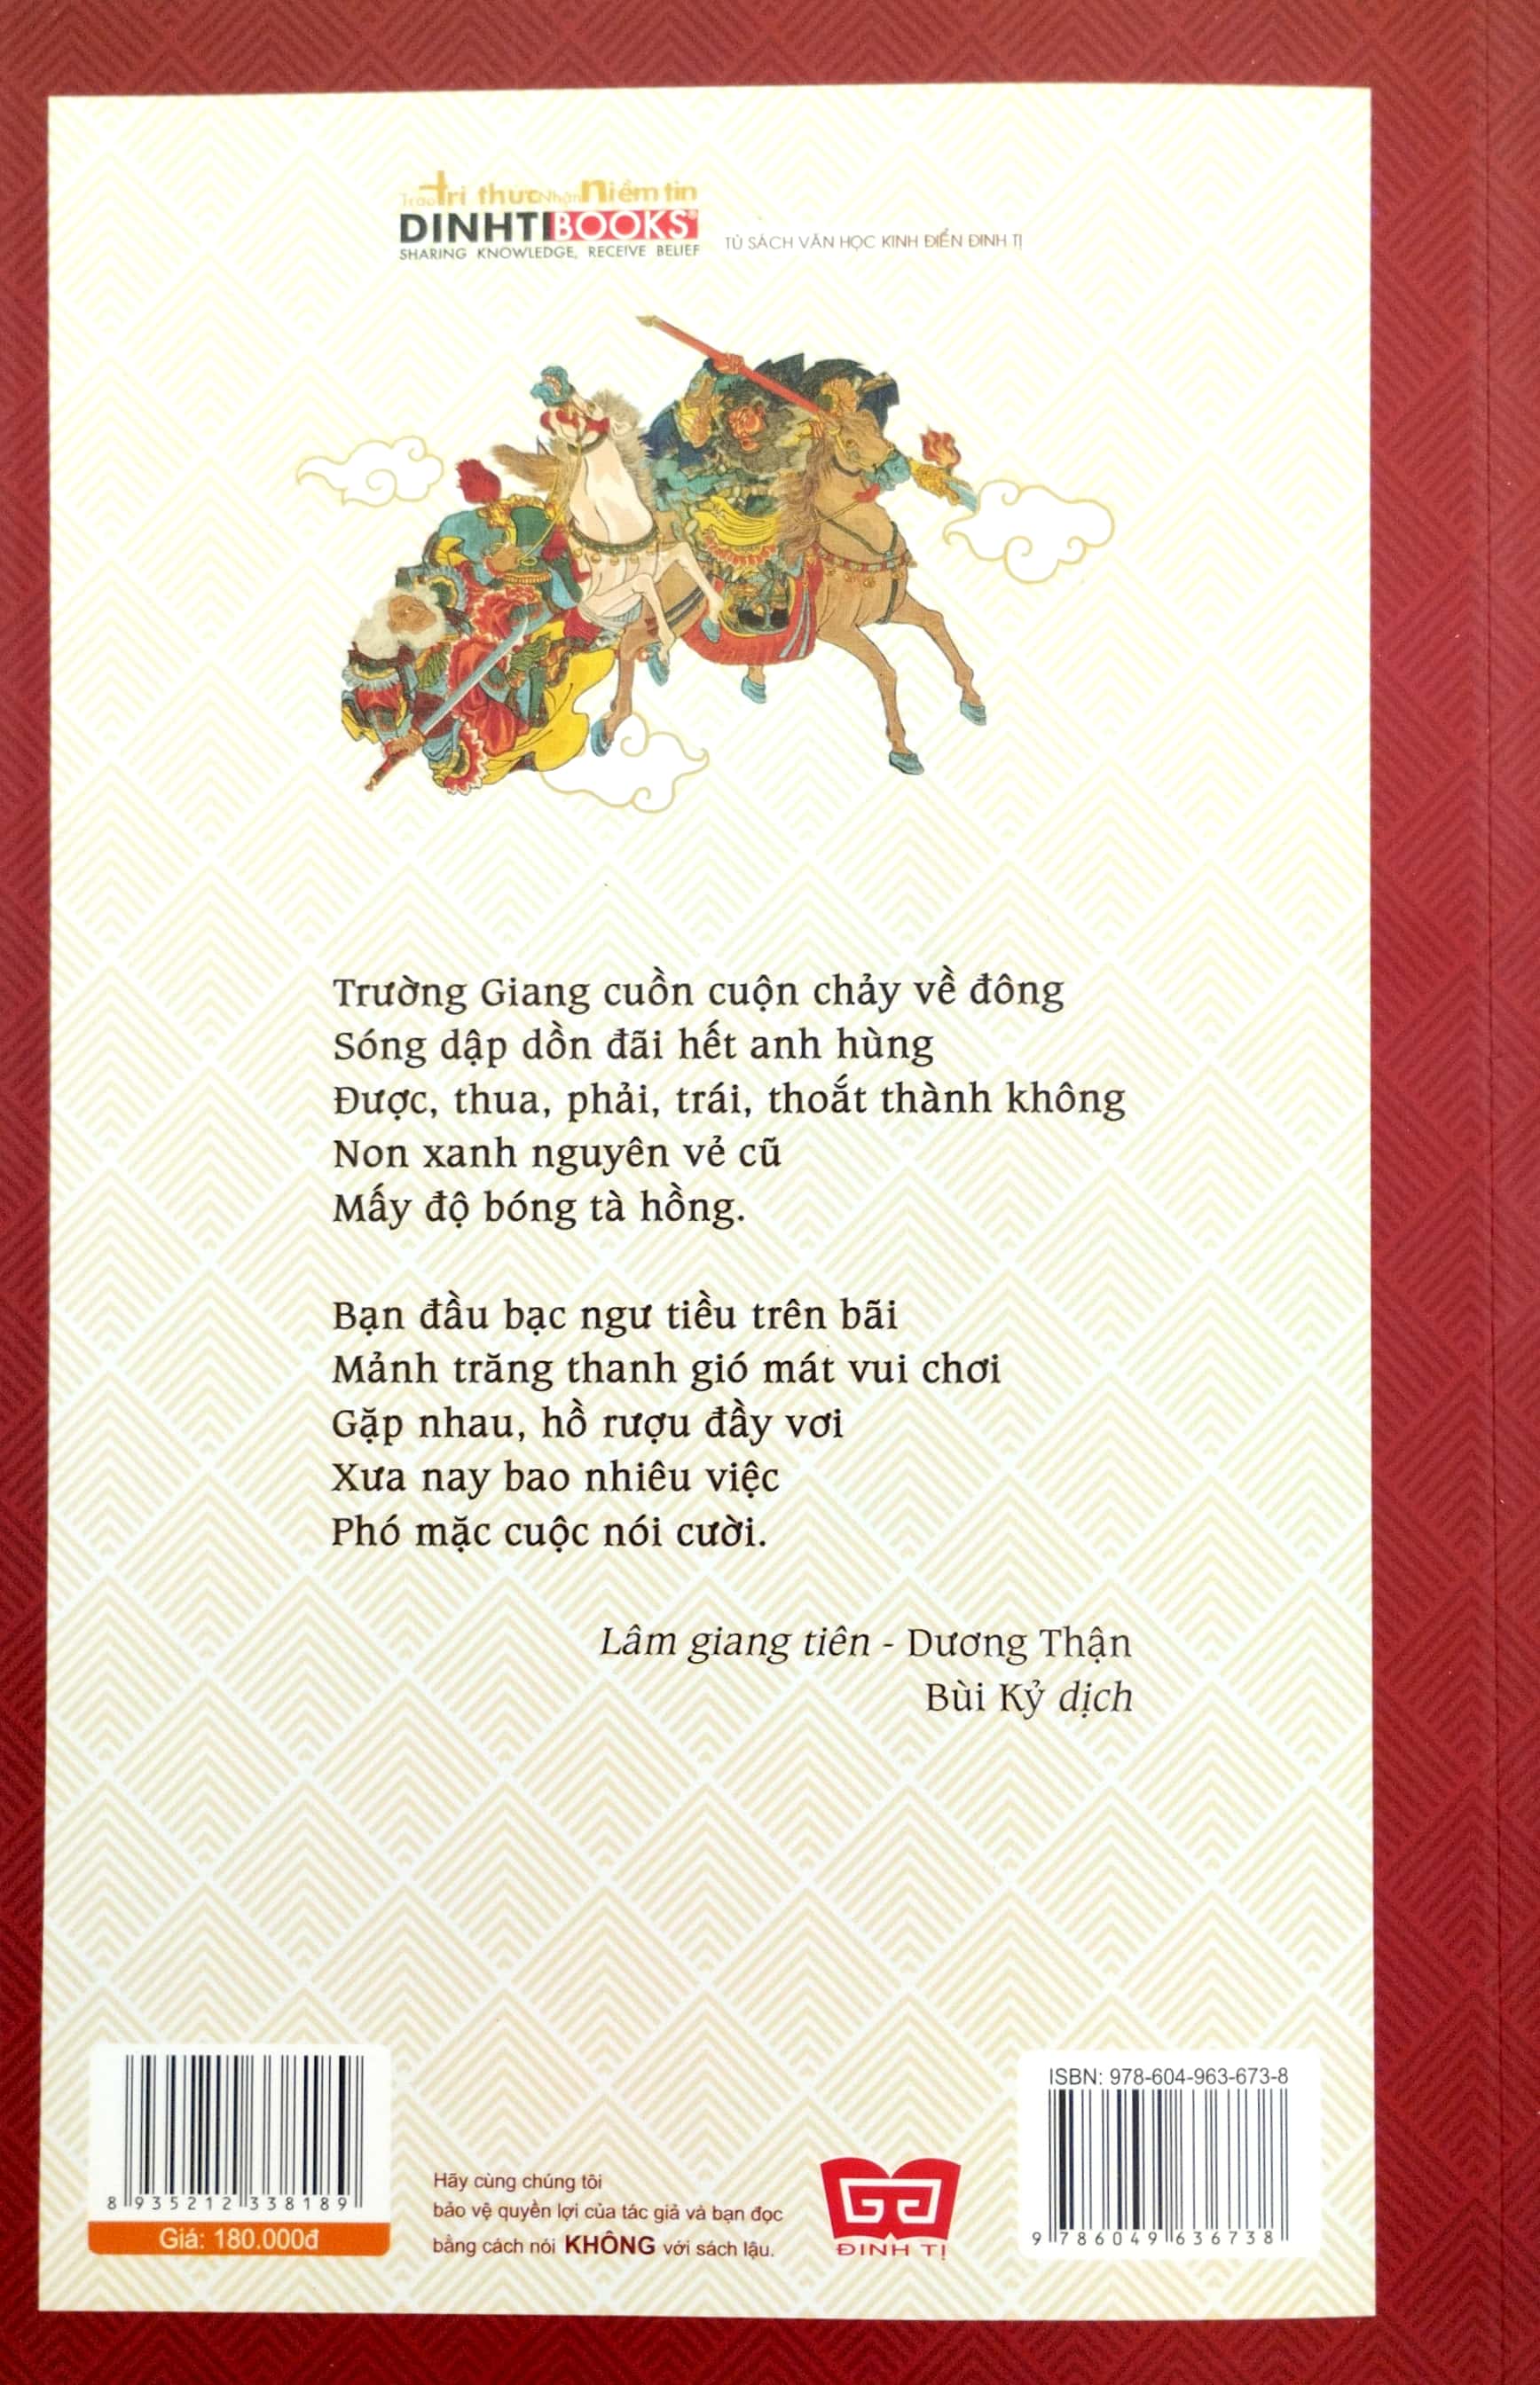 Trao tri thức Nhận niềm tin
DINHTIBOOKS®
SHARING KNOWLEDGE, RECEIVE BELIEF
TỦ SÁCH VĂN HỌC KINH ĐIỂN ĐINH TỊ
Trường Giang cuồn cuộn chảy về đông
Sóng dập dồn đãi hết anh hùng
Được, thua, phải, trái, thoắt thành không
Non xanh nguyên vẻ cũ
Mấy độ bóng tà hồng.
Bạn đầu bạc ngư tiều trên bãi
Mảnh trăng thanh gió mát vui chơi
Gặp nhau, hồ rượu đầy vơi
Xưa nay bao nhiêu việc
Phó mặc cuộc nói cười.
Lâm giang tiên - Dương Thận
Bùi Kỷ dịch
8935212338189
Giá: 180.000đ
Hãy cùng chúng tôi
bảo vệ quyền lợi của tác giả và bạn đọc
bằng cách nói KHÔNG với sách lậu.
ĐINH TỊ
ISBN: 978-604-963-673-8
9786049636738